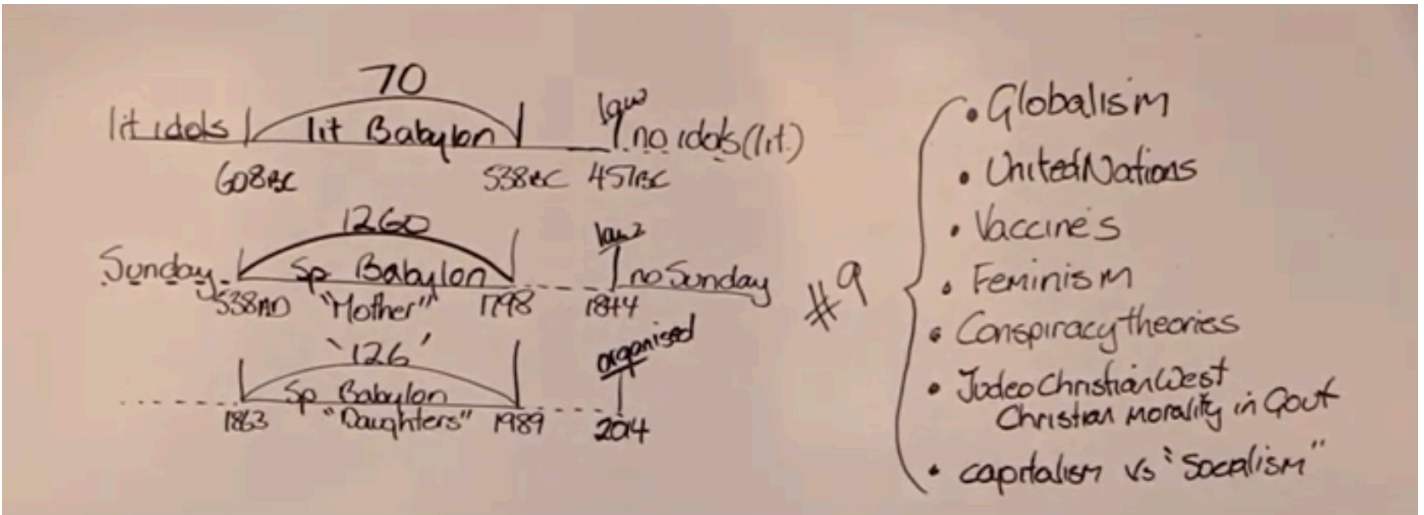 70
lit idols lit Babylon law no idols (lit.)
608BC 538BC 457BC
1260
Sunday Sp Babylon law no Sunday
538AD "Mother" 1798 1844
'126'
Sp Babylon organised
1863 "Daughters" 1989 2014
#9
• Globalism
• United Nations
• Vaccine's
• Feminism
• Conspiracy theories
• Judeo Christian West
Christian morality in Govt
• capitalism vs "Socialism"